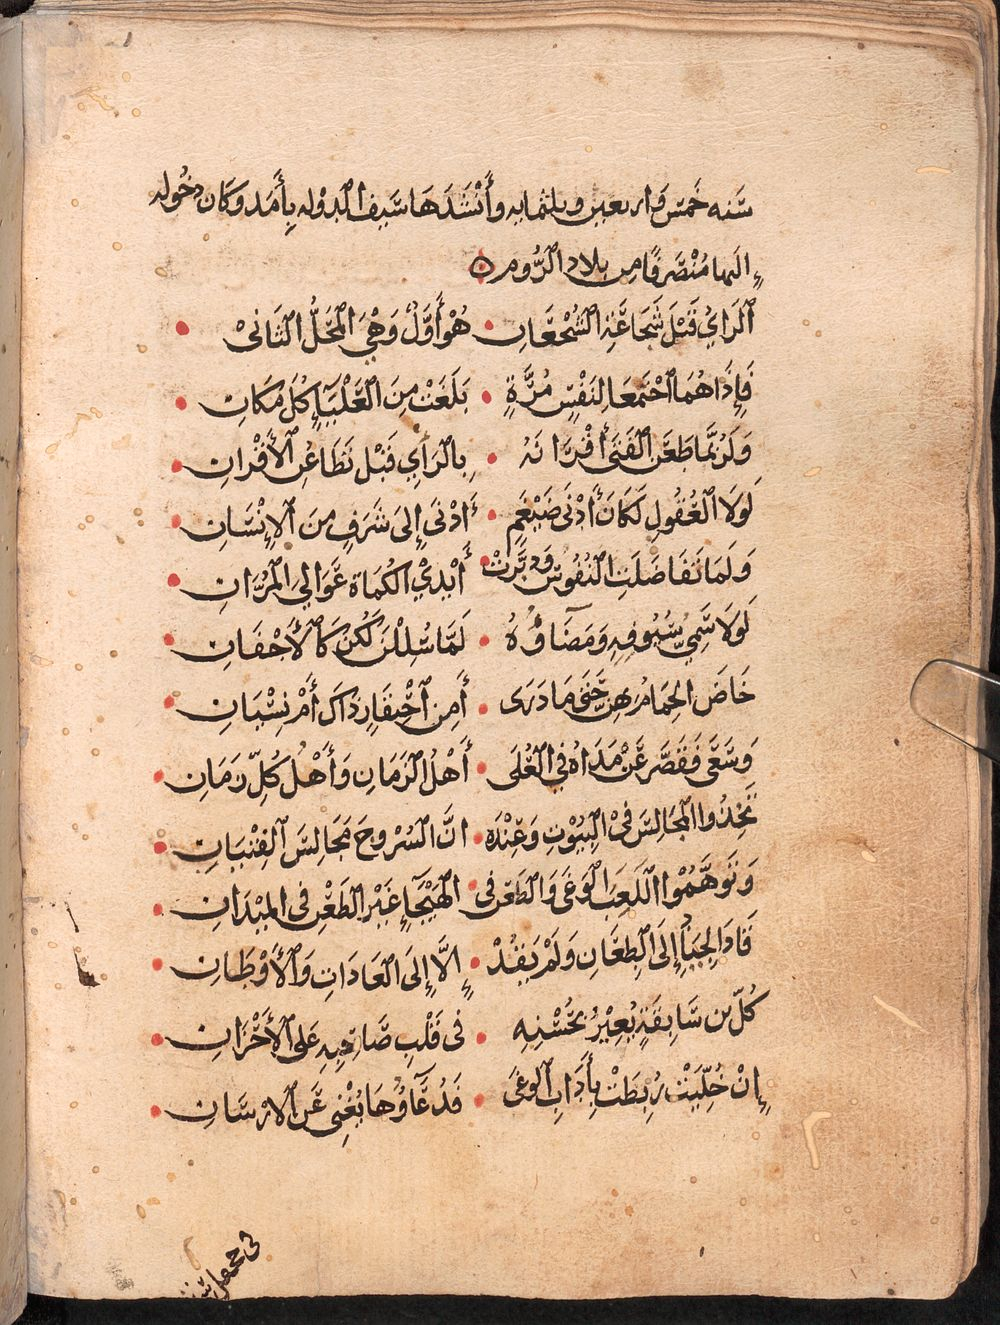 سَنه خَمسٍ وَاربعين وثلثمايه وأَنْشَدَهَا سَيف الدوله بِأَمَد وَكَان دخُوله
إليها مُنْصَرفًا مِن بلاد الرُّوم
اَلرَايُ قَبْلَ شَجَاعَةِ الشُجْعَانِ • هُوَ أَوَّلٌ وَهْيَ المَحَلُّ الثَانيْ •
فَإِذَا هُمَا اَجْتَمَعَا لِنَفْسٍ مُرَّةٍ • بَلَغَتْ مِنَ العَلْيَآءِ كُلَ مَكَانِ •
وَلَرُبَّمَا طَعَنَ الفَتَى أَقْرَانَهُ • بِالرَأيِ قَبْلَ تَطَاعُنِ الأَقْرانِ •
لَولَا العُقُولُ لَكَانَ أَدْنَى ضَيْغَمٍ • أَدْنَى إلىَ شَرَفٍ مِنَ الإِنْسَانِ •
وَلَمَا تَفَاضَلَتِ النُفُوسُ وَدَبَّرَتْ • أَيْدِيْ الكُمَاة عَوَاليَ المُرَّانِ •
لَولَا سَمِيُّ سُيُوفِهِ وَمَضَآؤُهُ • لَمَّا سُلِلْنَ لَكُنَّ كَالأَجْفَانِ •
خَاضَ الحِمَامَ بِهِنَّ حَتَى مَا دَرَى • أَمِن اَحْتِقَارٍ ذاكَ أَمْ نِسْيَانِ •
وَسَعَى فَقَصَّرَ عَنْ مَدَاهُ في العُلَى • أَهْلُ الزَمَانِ وَأَهْلُ كُلِّ زَمَانِ •
تَخِذُوا المَجَالِسَ فيْ البُيُوْتِ وَعِنْدَه • انَّ السُرُوجَ مَجَالِسُ الفِتْيَانِ •
وَتَوَهَّمُوْا اللَعِبَ الوَغَى وَالطَعْنُ فى • الهَيْجَآءِ غَيْرُ الطَعْنِ في المَيْدَانِ •
قَادَ الجِيَادَ إِلَى الطِعَانِ وَلَمْ يَقُدْ • إِلَّا إِلَى العَادَاتِ وَالأَوْطَانِ •
كُلّ بن سَابِقَةٍ يُغِيْرُ بحُسْنِهِ • فى قَلْبِ صَاحِبِهِ عَلى الأَحْزَانِ •
إِنْ خُلِّيَتْ رُبِطَتْ بِأَدَابِ الوَغَى • فَدُعَآؤُهَا يُغْنِي عَنِ الارْسَانِ •
فى جحفل